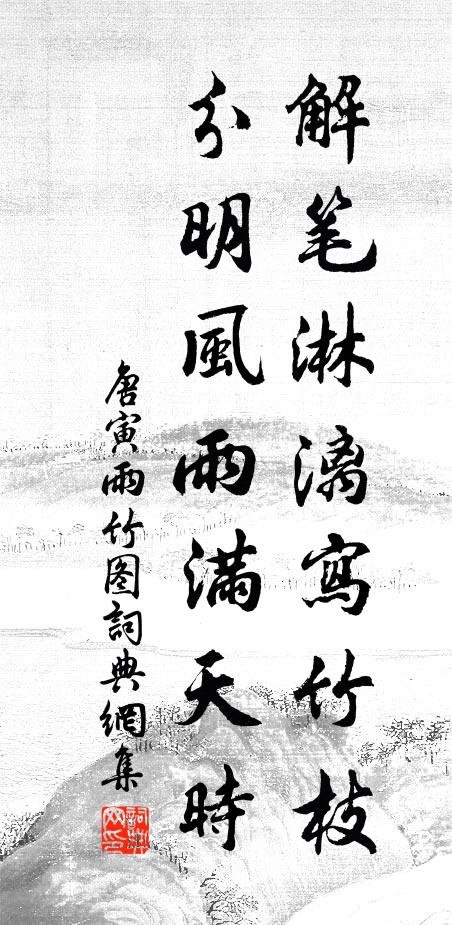 解笔淋漓寫竹枝
分明風雨滿天時
唐寅雨竹图詞典網集